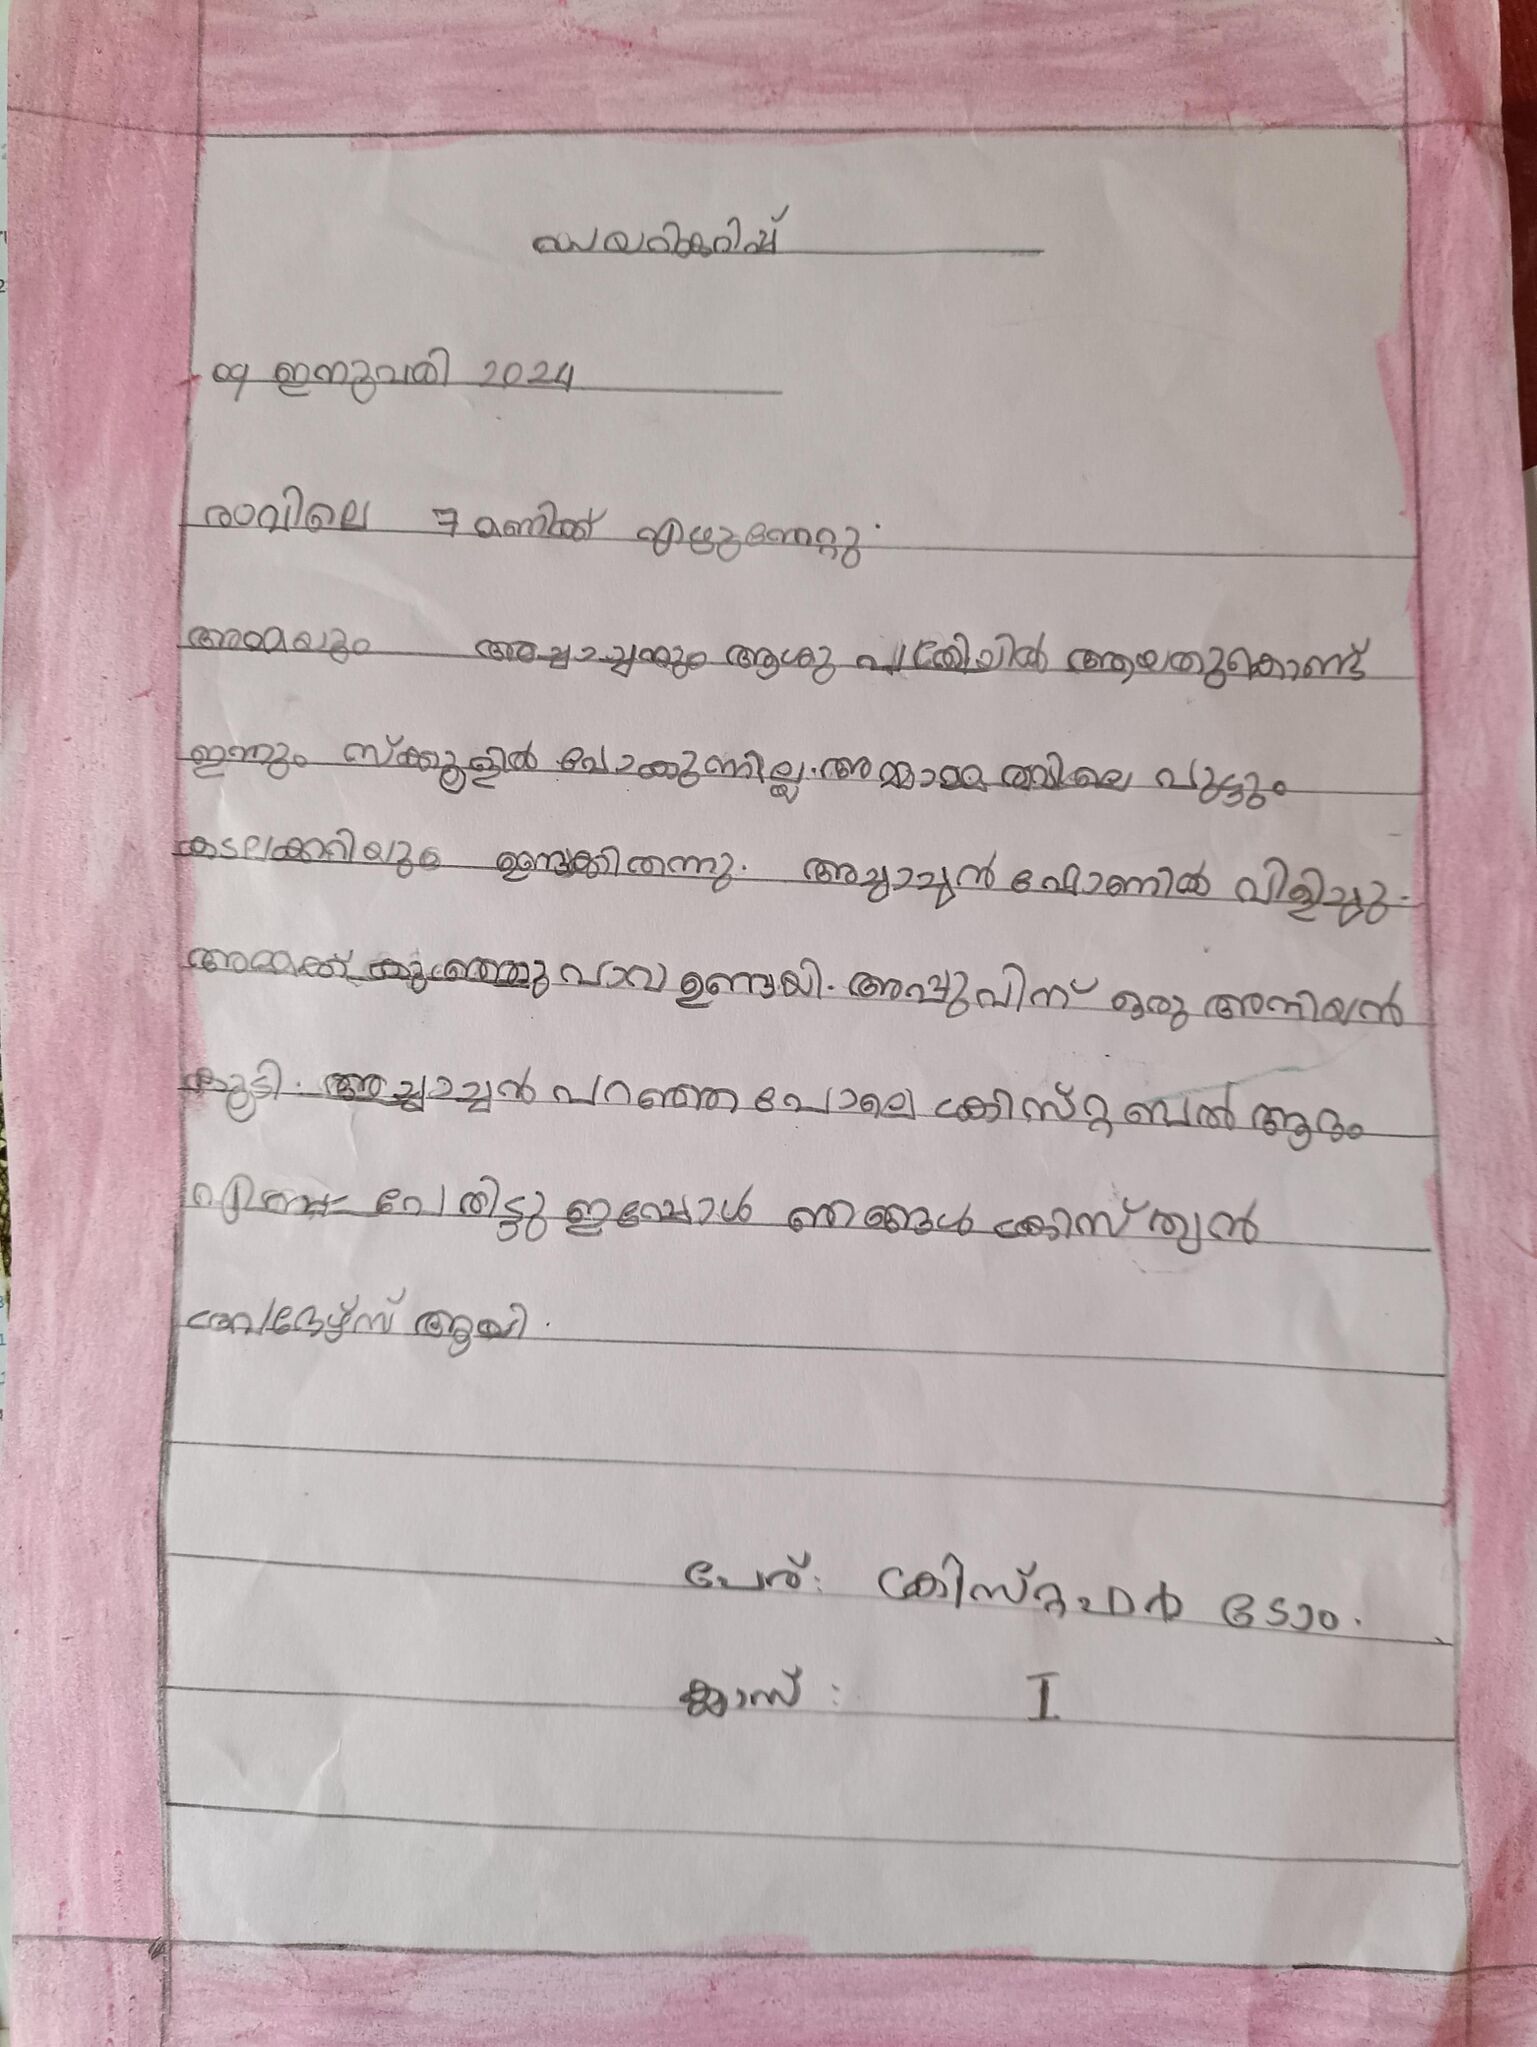 ഡയറിക്കുറിപ്പ്
09 ജനുവരി 2024
രാവിലെ 7 മണിക്ക് എഴുന്നേറ്റു.
അമ്മയും അച്ചാച്ചനും ആശുപത്രിയിൽ ആയതുകൊണ്ട്
ഇന്നും സ്ക്കൂളിൽ പോക്കുന്നില്ല. അമ്മാമ്മ രവിലെ പുട്ടും
കടലക്കറിയും ഉണ്ടാക്കിതന്നു. അച്ചാച്ചൻ ഫോണിൽ വിളിച്ചു.
അമ്മക്ക് കുഞ്ഞു വാവ ഉണ്ടായി. അപ്പുവിന് ഒരു അനിയൻ
കൂടി. അച്ചാച്ചൻ പറഞ്ഞ പോലെ ക്രിസ്റ്റബൽ ആദം
എന്ന പേരിട്ടു ഇപ്പോൾ ഞങ്ങൾ ക്രിസ്ത്യൻ
ബ്രദേഴ്സ് ആയി.
പേര്: ക്രിസ്റ്റഫർ ടോം.
ക്ലാസ് : I